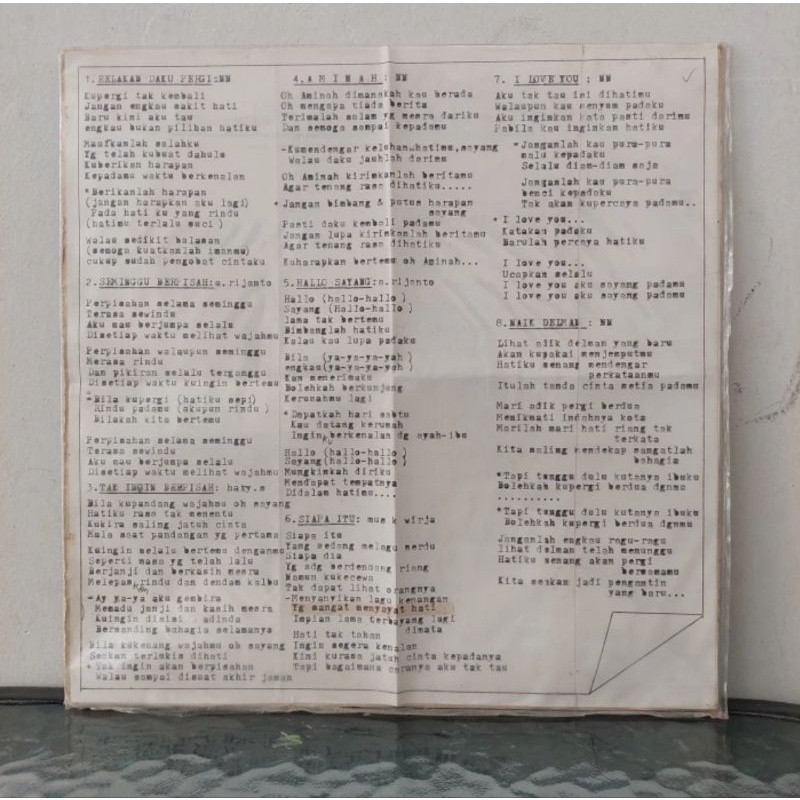 1. RELAKAN DAKU PERGI:NN
Kupergi tak kembali
Jangan engkau sakit hati
Baru kini aku tau
engkau bukan pilihan hatiku
Maafkanlah salahku
Yg telah kubuat dahulu
Kuberikan harapan
Kepadamu waktu berkenalan
*Berikanlah harapan
(jangan harapkan aku lagi)
Pada hati ku yang rindu
(hatimu terlalu suci )
Walau sedikit balasan
(semoga kuatkanlah imanmu)
cukup sudah pengobat cintaku
2.SEMINGGU BERPISAH:a.rijanto
Perpisahan selama seminggu
Terasa sewindu
Aku mau berjumpa selalu
Disetiap waktu melihat wajahmu
Perpisahan walaupun seminggu
Merasa rindu
Dan pikiran selalu terganggu
Disetiap waktu kuingin bertemu
-Bila kupergi (hatiku sepi)
Rindu padamu (akupun rindu )
Bilakah kita bertemu
Perpisahan selama seminggu
Terasa sewindu
Aku mau berjumpa selalu
Disetiap waktu melihat wajahmu
3.TAK INGIN BERPISAH: haky.s
Bila kupandang wajahmu oh sayang
Hatiku rasa tak menentu
Kukira saling jatuh cinta
Mula saat pandangan yg pertama
Kuingin selalu bertemu denganmu
Seperti masa yg telah lalu
Berjanji dan berkasih mesra
Melepas rindu dan dendam kalbu
-Ay ya-ya aku gembira
Memadu janji dan kasih mesra
Kuingin disisi adinda
Bersanding bahagia selamanya
Bila kukenang wajahmu oh sayang
Seakan terlukis dihati
*Tak ingin akan berpisahan
Walau sampai disaat akhir jaman
4.A M I N A H : NN
Oh Aminah dimanakah kau berada
Oh mengapa tiada berita
Terimalah salam yg mesra dariku
Dan semoga sampai kepadamu
-Kumendengar keluhan hatimu,sayang
Walau daku jauhlah darimu
Oh Aminah kirimkanlah beritamu
Agar tenang rasa dihatiku.....
*Jangan bimbang & putus harapan
sayang
Pasti daku kembali padamu
Jangan lupa kirimkanlah beritamu
Agar tenang rasa dihatiku
Kuharapkan bertemu oh Aminah...
5.HALLO SAYANG:a.rijanto
Hallo (hallo-hallo )
Sayang (Hallo-hallo )
lama tak bertemu
Bimbanglah hatiku
Kalau kau lupa padaku
Bila (ya-ya-ya-yah )
engkau(ya-ya-ya-yah )
Kan menerimaku
Bolehkah berkunjung
Kerumahmu lagi
*Dapatkah hari sabtu
Kau datang kerumah
Ingin berkenalan dg ayah-ibu
Hallo (hallo-hallo )
Sayang(hallo-hallo )
Mungkinkah diriku
Mendapat tempatnya
Didalam hatimu....
6.SIAPA ITU: mus k wirja
Siapa itu
Yang sedang melagu merdu
Siapa dia
Yg sdg berdendang riang
Namun kukecewa
Tak dapat lihat orangnya
-Menyanyikan lagu kenangan
Yg sangat menyayat hati
Impian lama terbayang lagi
dimata
Hati tak tahan
Ingin segera kenalan
Kini kurasa jatuh cinta kepadanya
Tapi bagaimana caranya aku tak tau
7. I LOVE YOU : NN
Aku tak tau isi dihatimu
Walaupun kau senyum padaku
Aku inginkan kata pasti darimu
Pabila kau inginkan hatiku
*Janganlah kau pura-pura
malu kepadaku
Selalu diam-diam saja
Janganlah kau pura-pura
benci kepadaku
Tak akan kupercaya padamu..
*I love you...
Katakan padaku
Barulah percaya hatiku
I love you...
Ucapkan selalu
I love you aku sayang padamu
I love you aku sayang padamu
8.NAIK DELMAN : NN
Lihat adik delman yang baru
Akan kupakai menjemputmu
Hatiku senang mendengar
perkataanmu
Itulah tanda cinta setia padamu
Mari adik pergi berdua
Menikmati indahnya kota
Marilah mari hati riang tak
terkata
Kita saling mendekap sangatlah
bahagia
*Tapi tunggu dulu kutanya ibuku
Bolehkah kupergi berdua dgnmu
..........
*Tapi tunggu dulu kutanya ibuku
Bolehkah kupergi berdua dgnmu
Janganlah engkau ragu-ragu
lihat delman telah menunggu
Hatiku senang akan pergi
bersamamu
Kita seakan jadi pengantin
yang baru...